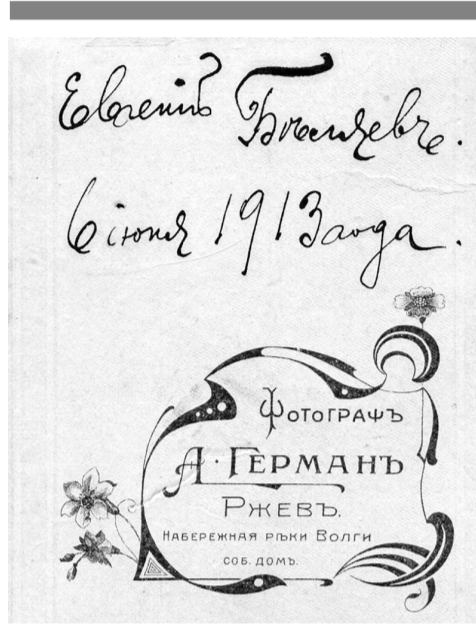 Евгеній Бѣляевъ.
6 іюня 1913 года.
Фотографъ
А. Германъ
Ржевъ.
Набережная рѣки Волги
соб. домъ.